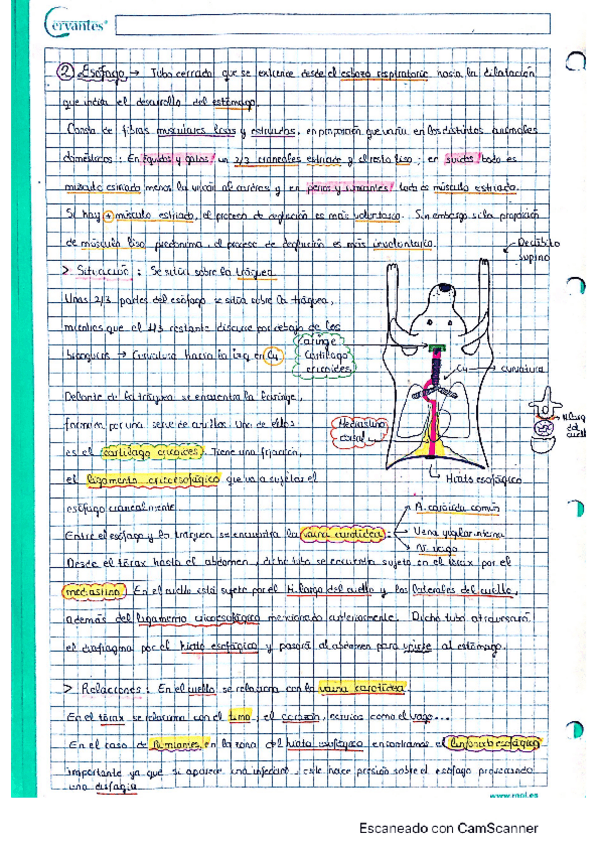 Cervantes®
② Esófago → Tubo cerrado que se extiende desde el esbozo respiratorio hasta la dilatación
que indica el desarrollo del estómago.
Consta de fibras musculares lisas y estriadas, en proporción que varía en los distintos animales
domésticos: En équidos y gatos/ un 2/3 craneales estriado y el resto liso; en suidos/ todo es
músculo estriado menos la unión al cardias y en perros y rumiantes/ todo es músculo estriado.
Si hay + músculo estriado, el proceso de deglución es más voluntario. Sin embargo si la proporción
de músculo liso predomina, el proceso de deglución es más involuntario.
Decúbito
supino
> Situación: Se sitúa sobre la tráquea
Unas 2/3 partes del esófago se sitúa sobre la tráquea,
mientras que el 1/3 restante discurre por debajo de los
bronquios → Curvatura hacia la izq en C4
Laringe
Cartílago
cricoides
C4 → curvatura
Delante de la tráquea se encuentra la laringe,
formada por una serie de anillos. Uno de ellos
es el cartílago cricoides. Tiene una fijación,
el ligamento cricoesofágico que va a sujetar el
esófago cranealmente
Mediastino
caudal
M. largo
del
cuello
Hiato esofágico
Entre el esófago y la tráquea se encuentra la vaina carotídea:
A. carótida común
Vena yugular interna
N. vago
Desde el tórax hasta el abdomen, dicho tubo se encuentra sujeto en el tórax por el
mediastino. En el cuello está sujeto por el M. largo del cuello y los laterales del cuello,
además del ligamento cricoesofágico mencionado anteriormente. Dicho tubo atravesará
el diafragma por el hiato esofágico y pasará al abdomen para unirse al estómago.
> Relaciones: En el cuello se relaciona con la vaina carotídea.
En el tórax se relaciona con el timo, el corazón, nervios como el vago...
En el caso de rumiantes, en la zona del hiato esofágico encontramos el linfonodo esofágico
importante ya que si aparece una infección, este hace presión sobre el esófago provocando
una disfagia
Escaneado con CamScanner